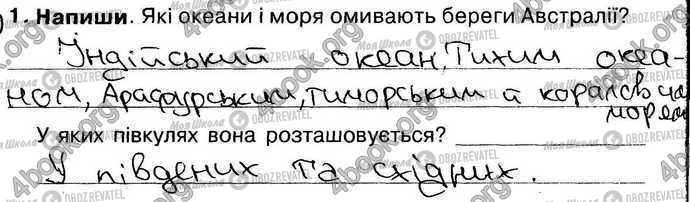 1. Напиши. Які океани і моря омивають береги Австралії?
Індійський океан, Тихим океа-
ном, Арафурським, тиморським а
морем
У яких півкулях вона розташовується?
У південих та східних.